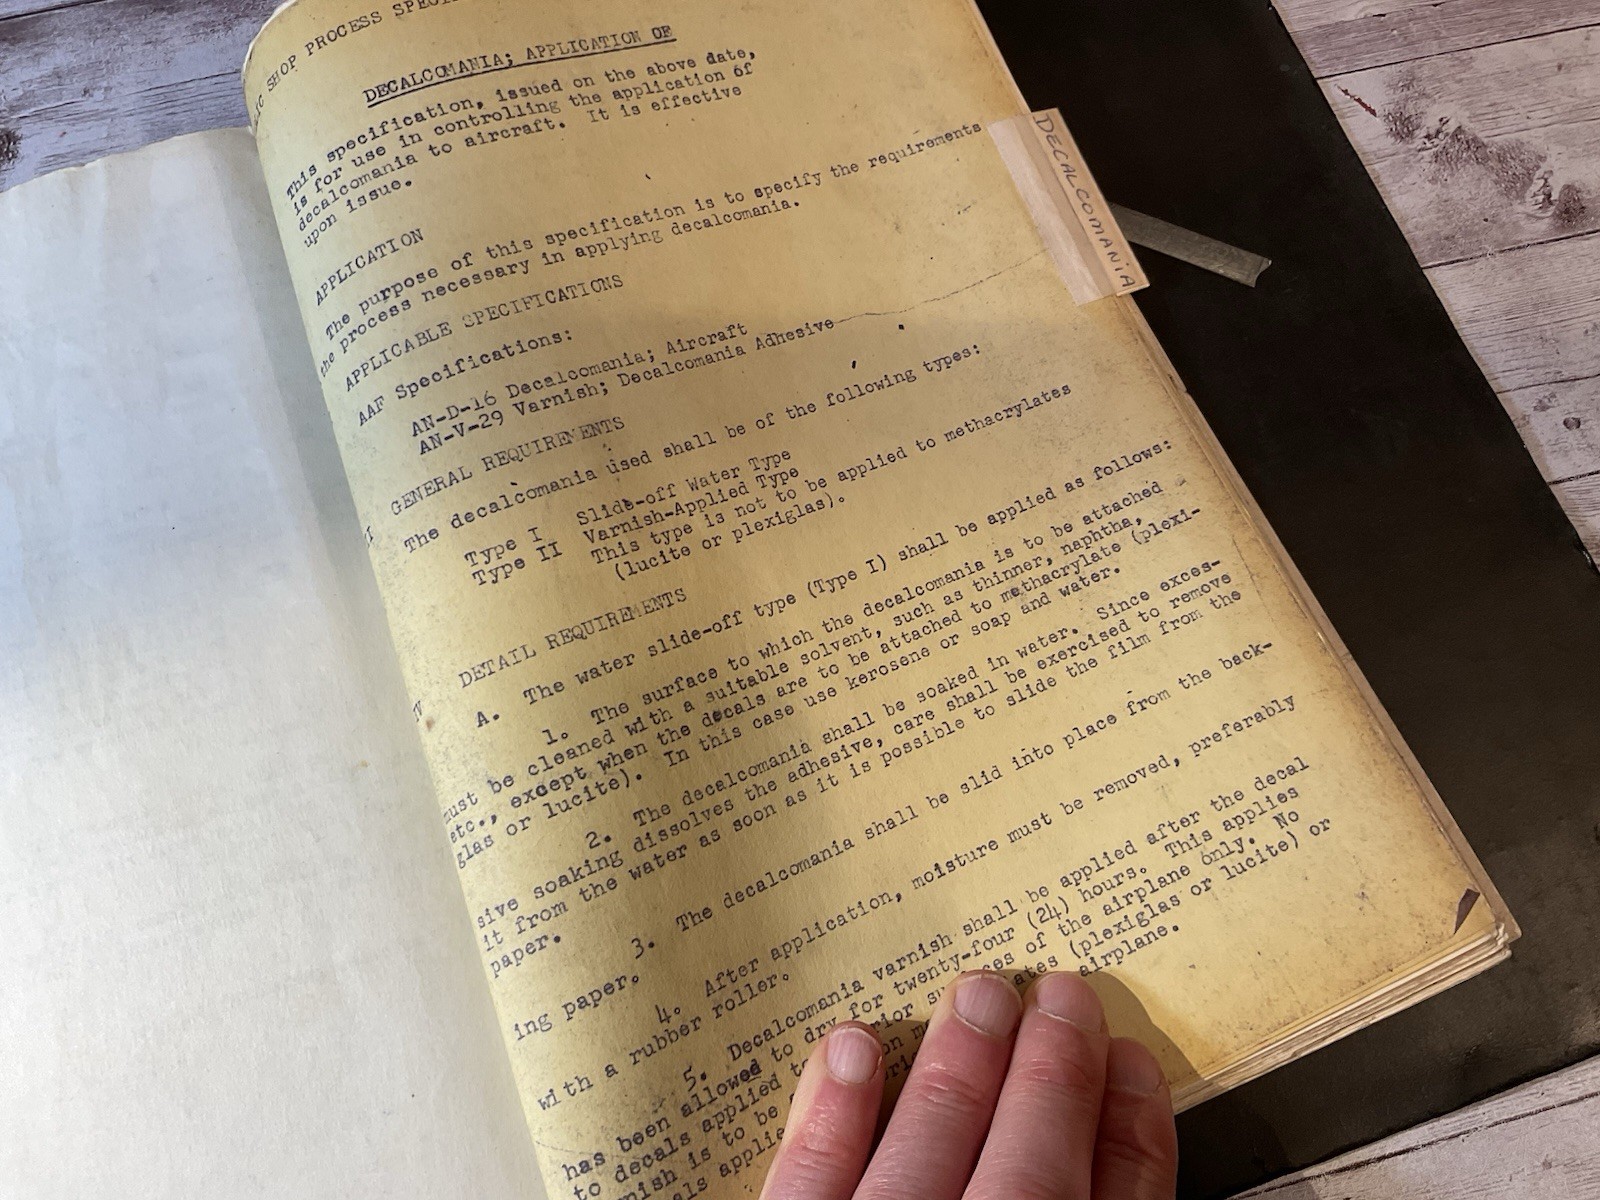 SHOP PROCESS
DECALCOMANIA; APPLICATION OF
This specification, issued on the above date,
is for use in controlling the application of
decalcomania to aircraft. It is effective
upon issue.
APPLICATION
The purpose of this specification is to specify the requirements
the process necessary in applying decalcomania.
APPLICABLE SPECIFICATIONS
AAF Specifications:
AN-D-16 Decalcomania; Aircraft
AN-V-29 Varnish; Decalcomania Adhesive
GENERAL REQUIREMENTS
The decalcomania used shall be of the following types:
Type I Slide-off Water Type
Type II Varnish-Applied Type
This type is not to be applied to methacrylates
(lucite or plexiglas).
IV DETAIL REQUIREMENTS
A. The water slide-off type (Type I) shall be applied as follows:
1. The surface to which the decalcomania is to be attached
must be cleaned with a suitable solvent, such as thinner, naphtha,
etc., except when the decals are to be attached to methacrylate (plexi-
glas or lucite). In this case use kerosene or soap and water.
2. The decalcomania shall be soaked in water. Since exces-
sive soaking dissolves the adhesive, care shall be exercised to remove
it from the water as soon as it is possible to slide the film from the
paper.
3. The decalcomania shall be slid into place from the back-
ing paper.
4. After application, moisture must be removed, preferably
with a rubber roller.
5. Decalcomania varnish shall be applied after the decal
has been allowed to dry for twenty-four (24) hours. This applies
to decals applied of the airplane only. No
is to be (plexiglas or lucite) or
airplane.
DECALCOMANIA